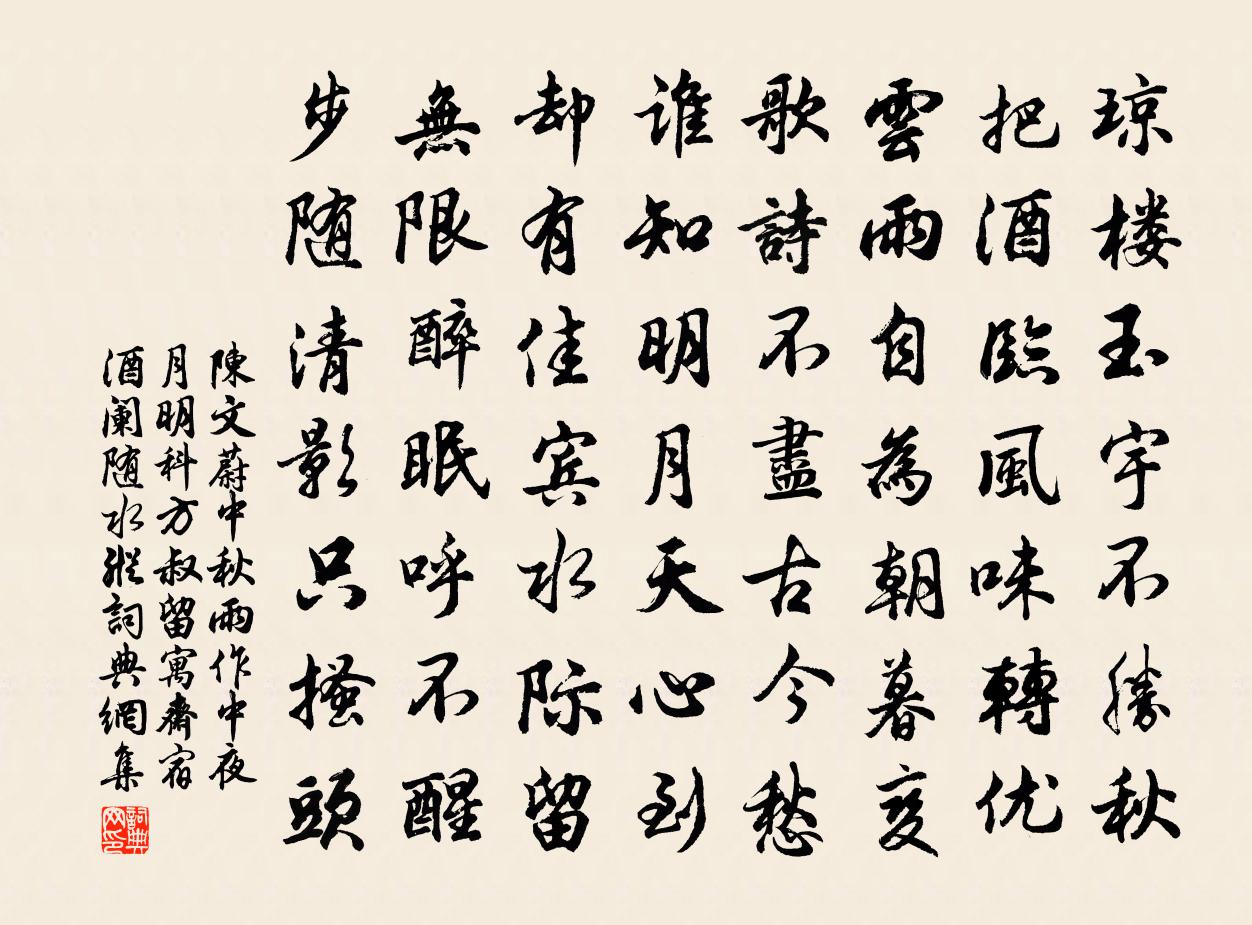 琼楼玉宇不勝秋
把酒臨風味轉优
雲雨自為朝暮变
歌詩不盡古今愁
谁知明月天心到
却有佳宾水际留
無限醉眠呼不醒
步随清影只搔頭
陳文蔚中秋雨作中夜
月明科方叔留寓齋宿
酒阑随水
詞典網集
詞典